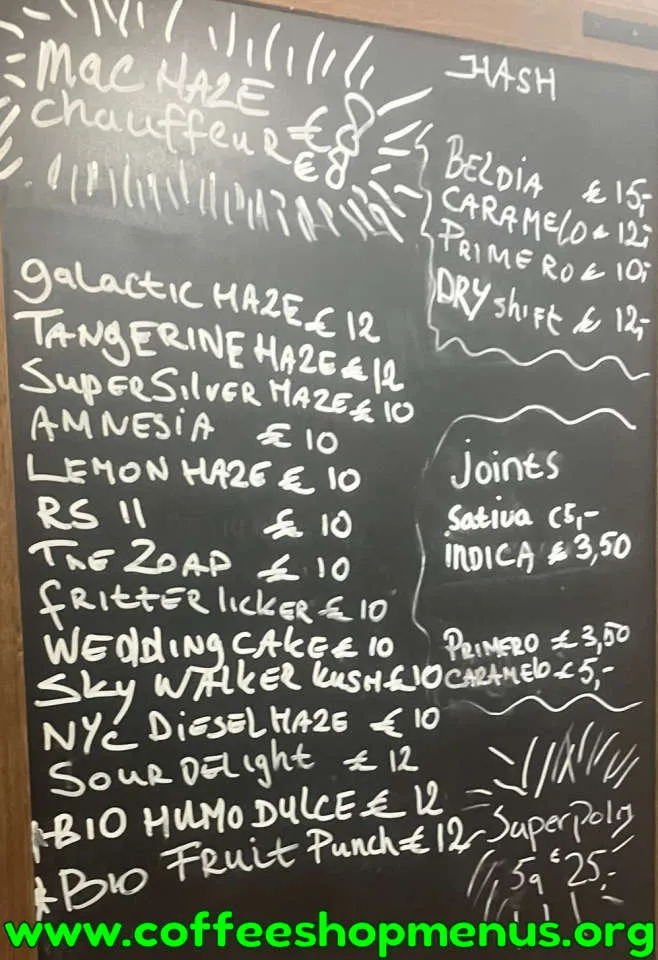 MAC HAZE €8
chauffeur €8
galactic HAZE € 12
TANGERINE HAZE € 12
SUPER SILVER HAZE € 10
AMNESIA € 10
LEMON HAZE € 10
RS 11 € 10
THE ZOAP € 10
FRITTER licker € 10
WEDDING CAKE € 10
SKY WALKER KUSH € 10
NYC DIESEL HAZE € 10
SOUR DELIGHT € 12
*BIO HUMO DULCE € 12
*BIO FRUIT Punch € 12,-
HASH
BELDIA € 15,-
CARAMELO € 12,-
PRIMERO € 10,-
DRY shift € 12,-
joints
Sativa €5,-
INDICA € 3,50
PRIMERO € 3,50
CARAMELO € 5,-
Superpolm
5g € 25,-
www.coffeeshopmenus.org